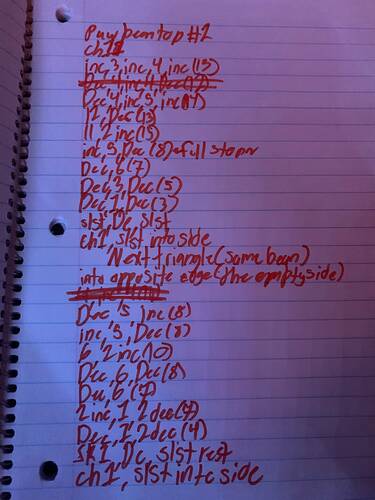 Puy bean top #1
ch 11
inc, 3, inc, 4, inc (13)
Dec, 4, inc, 5, inc (14)
11, Dec (13)
11, 2 inc (15)
inc, 5, Dec (8) full stop
Dec, 6 (7)
Dec, 3, Dec (5)
Dec, 1, Dec (3)
slst, Dc, slst
ch 1, slst into side
Next triangle (same bean)
into opposite edge (the empty side)
Dec, 5 inc (8)
inc, 5, Dec (8)
6, 2 inc (10)
Dec, 6, Dec (8)
Dec, 6, (7)
2 inc, 1, 2 dec (7)
Dec, 1, 2 dec (4)
SK1, Dc, slst rest
ch 1, slst into side